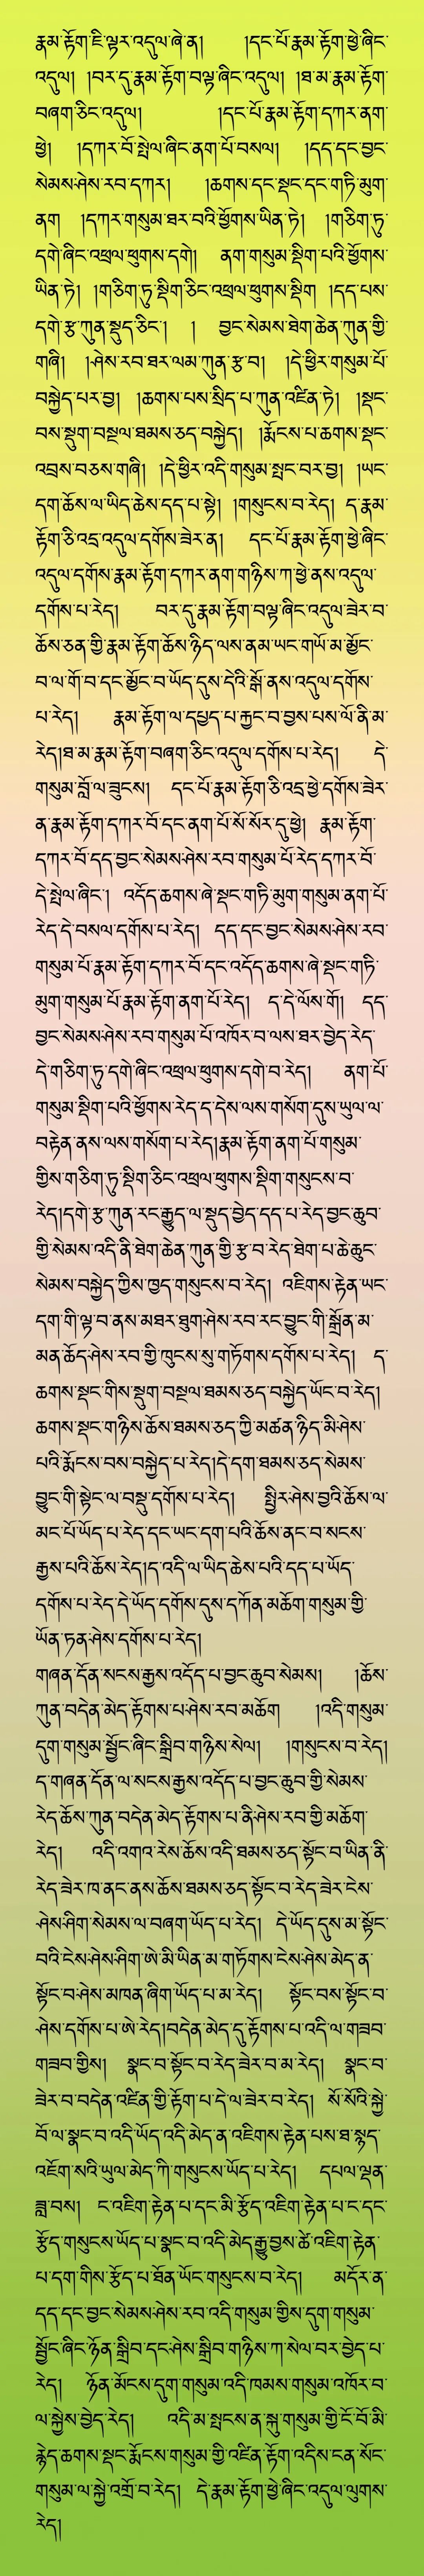 རྣམ་རྟོག་ཇི་ལྟར་འདུལ་ཞེ་ན། །དང་པོ་རྣམ་རྟོག་ཕྱེ་ཞིང་
འདུལ། །བར་དུ་རྣམ་རྟོག་བལྟ་ཞིང་འདུལ། །ཐ་མ་རྣམ་རྟོག་
བཞག་ཅིང་འདུལ། །དང་པོ་རྣམ་རྟོག་དཀར་ནག་
ཕྱེ། །དཀར་བོ་སྤེལ་ཞིང་ནག་པོ་བསལ། །དད་དང་བྱང་
སེམས་ཤེས་རབ་དཀར། །ཆགས་དང་སྡང་དང་གཏི་མུག་
ནག །དཀར་གསུམ་ཐར་བའི་ཕྱོགས་ཡིན་ཏེ། །གཅིག་ཏུ་
དགེ་ཞིང་འཕྲལ་ཕུགས་དགེ། ནག་གསུམ་སྡིག་པའི་ཕྱོགས་
ཡིན་ཏེ། །གཅིག་ཏུ་སྡིག་ཅིང་འཕྲལ་ཕུགས་སྡིག །དད་པས་
དགེ་རྩ་ཀུན་སྡུད་ཅིང་། ། བྱང་སེམས་ཐེག་ཆེན་ཀུན་གྱི་
གཞི། །ཤེས་རབ་ཐར་ལམ་ཀུན་རྩ་བ། །དེ་ཕྱིར་གསུམ་པོ་
བསྐྱེད་པར་བྱ། །ཆགས་པས་སྲིད་པ་ཀུན་འཛིན་ཏེ། །སྡང་
བས་སྡུག་བསྔལ་ཐམས་ཅད་བསྐྱེད། །རྨོངས་པ་ཆགས་སྡང་
འབྲས་བཅས་གཞི། །དེ་ཕྱིར་འདི་གསུམ་སྤང་བར་བྱ། །ཡང་
དག་ཆོས་ལ་ཡིད་ཆེས་དད་པ་སྟེ། །གསུངས་བ་རེད། ད་རྣམ་
རྟོག་ཅི་འདྲ་འདུལ་དགོས་ཟེར་ན། དང་པོ་རྣམ་རྟོག་ཕྱེ་ཞིང་
འདུལ་དགོས་རྣམ་རྟོག་དཀར་ནག་གཉིས་ཀ་ཕྱེ་ནས་འདུལ་
དགོས་པ་རེད། བར་དུ་རྣམ་རྟོག་བལྟ་ཞིང་འདུལ་ཟེར་བ་
ཆོས་ཅན་གྱི་རྣམ་རྟོག་ཆོས་ཉིད་ལས་ནམ་ཡང་གཡོ་མ་མྱོང་
བ་ལ་གོ་བ་དང་མྱོང་བ་ཡོད་དུས་དེའི་སྒོ་ནས་འདུལ་དགོས་
པ་རེད། རྣམ་རྟོག་ལ་དཔྱད་པ་རྐྱང་བ་བྱས་པས་ལོ་ནི་མ་
རེད།ཐ་མ་རྣམ་རྟོག་བཞག་ཅིང་འདུལ་དགོས་པ་རེད། དེ་
གསུམ་བློ་ལ་ཟུངས། དང་པོ་རྣམ་རྟོག་ཅི་འདྲ་ཕྱེ་དགོས་ཟེར་
ན་རྣམ་རྟོག་དཀར་བོ་དང་ནག་པོ་སོ་སོར་དུ་ཕྱེ། རྣམ་རྟོག་
དཀར་བོ་དད་བྱང་སེམས་ཤེས་རབ་གསུམ་པོ་རེད་དཀར་བོ་
དེ་སྤེལ་ཞིང་། འདོད་ཆགས་ཞེ་སྡང་གཏི་མུག་གསུམ་ནག་པོ་
རེད་དེ་བསལ་དགོས་པ་རེད། དད་དང་བྱང་སེམས་ཤེས་རབ་
གསུམ་པོ་རྣམ་རྟོག་དཀར་བོ་དང་འདོད་ཆགས་ཞེ་སྡང་གཏི་
མུག་གསུམ་པོ་རྣམ་རྟོག་ནག་པོ་རེད། ད་དེ་ལོས་གོ། དད་
བྱང་སེམས་ཤེས་རབ་གསུམ་པོ་འཁོར་བ་ལས་ཐར་བྱེད་རེད་
དེ་གཅིག་ཏུ་དགེ་ཞིང་འཕྲལ་ཕུགས་དགེ་བ་རེད། ནག་པོ་
གསུམ་སྡིག་པའི་ཕྱོགས་རེད་ད་དེས་ལས་གསོག་དུས་ཡུལ་ལ་
བརྟེན་ནས་ལས་གསོག་པ་རེད།རྣམ་རྟོག་ནག་པོ་གསུམ་
གྱིས་གཅིག་ཏུ་སྡིག་ཅིང་འཕྲལ་ཕུགས་སྡིག་གསུངས་བ་
རེད།དགེ་རྩ་ཀུན་རང་རྒྱུད་ལ་སྡུད་བྱེད་དད་པ་རེད་བྱང་ཆུབ་
གྱི་སེམས་འདི་ནི་ཐེག་ཆེན་ཀུན་གྱི་རྩ་བ་རེད་ཐེག་པ་ཆེ་ཆུང་
སེམས་བསྐྱེད་ཀྱིས་ཁྱད་གསུངས་བ་རེད། འཇིགས་རྟེན་ཡང་
དག་གི་ལྟ་བ་ནས་མཐར་ཐུག་ཤེས་རབ་རང་བྱུང་གི་སྒྲོན་མ་
མན་ཆོད་ཤེས་རབ་གྱི་ཁུངས་སུ་གཏོགས་དགོས་པ་རེད། ད་
ཆགས་སྡང་གིས་སྡུག་བསྔལ་ཐམས་ཅད་བསྐྱེད་ཡོང་བ་རེད།
ཆགས་སྡང་གཉིས་ཆོས་ཐམས་ཅད་ཀྱི་མཚན་ཉིད་མི་ཤེས་
པའི་རྨོངས་བས་བསྐྱེད་པ་རེད།དེ་དག་ཐམས་ཅད་སེམས་
བྱུང་གི་སྟེང་ལ་བསྡུ་དགོས་པ་རེད། སྤྱིར་ཤེས་བྱའི་ཆོས་ལ་
མང་པོ་ཡོད་པ་རེད་དང་ཡང་དག་པའི་ཆོས་ནང་བ་སངས་
རྒྱས་པའི་ཆོས་རེད།ད་འདི་ལ་ཡིད་ཆེས་པའི་དད་པ་ཡོད་
དགོས་པ་རེད་དེ་ཡོད་དགོས་དུས་དཀོན་མཆོག་གསུམ་གྱི་
ཡོན་ཏན་ཤེས་དགོས་པ་རེད།
གཞན་དོན་སངས་རྒྱས་འདོད་པ་བྱང་ཆུབ་སེམས། །ཆོས་
ཀུན་བདེན་མེད་རྟོགས་པ་ཤེས་རབ་མཆོག །འདི་གསུམ་
དུག་གསུམ་སྦྱོང་ཞིང་སྒྲིབ་གཉིས་སེལ། །གསུངས་བ་རེད།
ད་གཞན་དོན་ལ་སངས་རྒྱས་འདོད་པ་བྱང་ཆུབ་གྱི་སེམས་
རེད་ཆོས་ཀུན་བདེན་མེད་རྟོགས་པ་ནི་ཤེས་རབ་གྱི་མཆོག་
རེད། འདི་འགའ་རེས་ཆོས་འདི་ཐམས་ཅད་སྟོང་བ་ཡིན་ནི་
རེད་ཟེར་ཁ་ནང་ནས་ཆོས་ཐམས་ཅད་སྟོང་བ་རེད་ཟེར་ངེས་
ཤེས་ཤིག་སེམས་ལ་བཞག་ཡོད་པ་རེད། དེ་ཡོད་དུས་མ་སྟོང་
བའི་ངེས་ཤེས་ཤིག་ཨེ་མི་ཡིན་མ་གཏོགས་ངེས་ཤེས་མེད་ན་
སྟོང་བ་ཤེས་མཁན་ཞིག་ཡོད་པ་མ་རེད། སྟོང་བས་སྟོང་བ་
ཤེས་དགོས་པ་ཨེ་རེད།བདེན་མེད་དུ་རྟོགས་པ་འདི་ལ་གཟབ་
གཟབ་གྱིས། སྣང་བ་སྟོང་བ་རེད་ཟེར་བ་མ་རེད། སྣང་བ་
ཟེར་བ་བདེན་འཛིན་གྱི་རྟོག་པ་དེ་ལ་ཟེར་བ་རེད། སོ་སོའི་སྐྱེ་
བོ་ལ་སྣང་བ་འདི་ཡོད་འདི་མེད་ན་འཇིགས་རྟེན་པས་ཐ་སྙད་
འཇོག་སའི་ཡུལ་མེད་ཀི་གསུངས་ཡོད་པ་རེད། དཔལ་ལྡན་
ཟླ་བས། ང་འཇིག་རྟེན་པ་དང་མི་རྩོད་འཇིག་རྟེན་པ་ང་དང་
རྩོད་གསུངས་ཡོད་པ་སྣང་བ་འདི་མེད་རྒྱུ་བྱས་ཚེ་འཇིག་རྟེན་
པ་དག་གིས་རྩོད་པ་ཐོན་ཡོང་གསུངས་བ་རེད། མདོར་ན་
དད་དང་བྱང་སེམས་ཤེས་རབ་འདི་གསུམ་གྱིས་དུག་གསུམ་
སྦྱོང་ཞིང་ཉོན་སྒྲིབ་དང་ཤེས་སྒྲིབ་གཉིས་ཀ་སེལ་བར་བྱེད་པ་
རེད། ཉོན་མོངས་དུག་གསུམ་འདི་ཁམས་གསུམ་འཁོར་བ་
ལ་སྐྱེས་བྱེད་རེད། འདི་མ་སྤངས་ན་སྐུ་གསུམ་གྱི་ངོ་བོ་མི་
རྙེད་ཆགས་སྡང་རྨོངས་གསུམ་གྱི་འཛིན་རྟོག་འདིས་ངན་སོང་
གསུམ་ལ་སྐྱེ་འགྲོ་བ་རེད། དེ་རྣམ་རྟོག་ཕྱེ་ཞིང་འདུལ་ལུགས་
རེད།